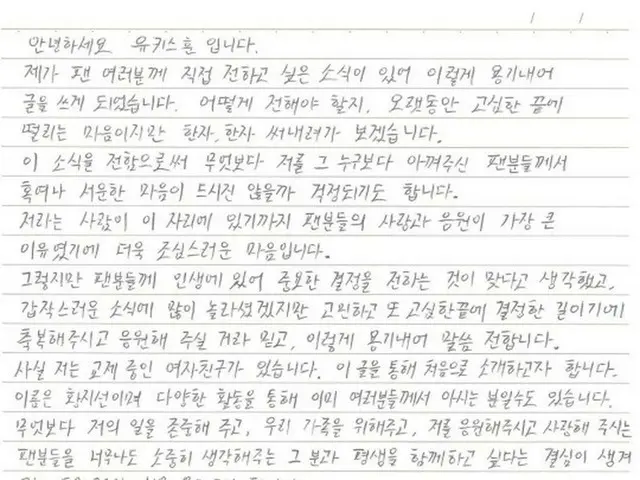 안녕하세요 유키스훈 입니다.
제가 팬 여러분께 직접 전하고 싶은 소식이 있어 이렇게 용기내어
글을 쓰게 되었습니다. 어떻게 전해야 할지, 오랫동안 고심한 끝에
떨리는 마음이지만 한자,한자 써내려가 보겠습니다.
이 소식을 전함으로써 무엇보다 저를 그 누구보다 아껴주신 팬분들께서
혹여나 서운한 마음이 드시진 않을까 걱정되기도 합니다.
저라는 사람이 이 자리에 있기까지 팬분들의 사랑과 응원이 가장 큰
이유였기에 더욱 조심스러운 마음입니다.
그렇지만 팬분들께 인생에 있어 중요한 결정을 전하는 것이 맞다고 생각했고,
갑작스러운 소식에 많이 놀라셨겠지만 고민하고 또 고심한끝에 결정한 일이기에
축복해주시고 응원해 주실 거라 믿고, 이렇게 용기내어 말씀 전합니다.
사실 저는 교제 중인 여자친구가 있습니다. 이 글을 통해 처음으로 소개하고자 합니다.
이름은 황지선이며 다양한 활동을 통해 이미 여러분들께서 아시는 분일수도 있습니다.
무엇보다 저의 일을 존중해 주고, 우리 가족을 위해주고, 저를 응원해주시고 사랑해 주시는
팬분들을 너무나도 소중히 생각해주는 그 분과 평생을 함께하고 싶다는 결심이 생겨